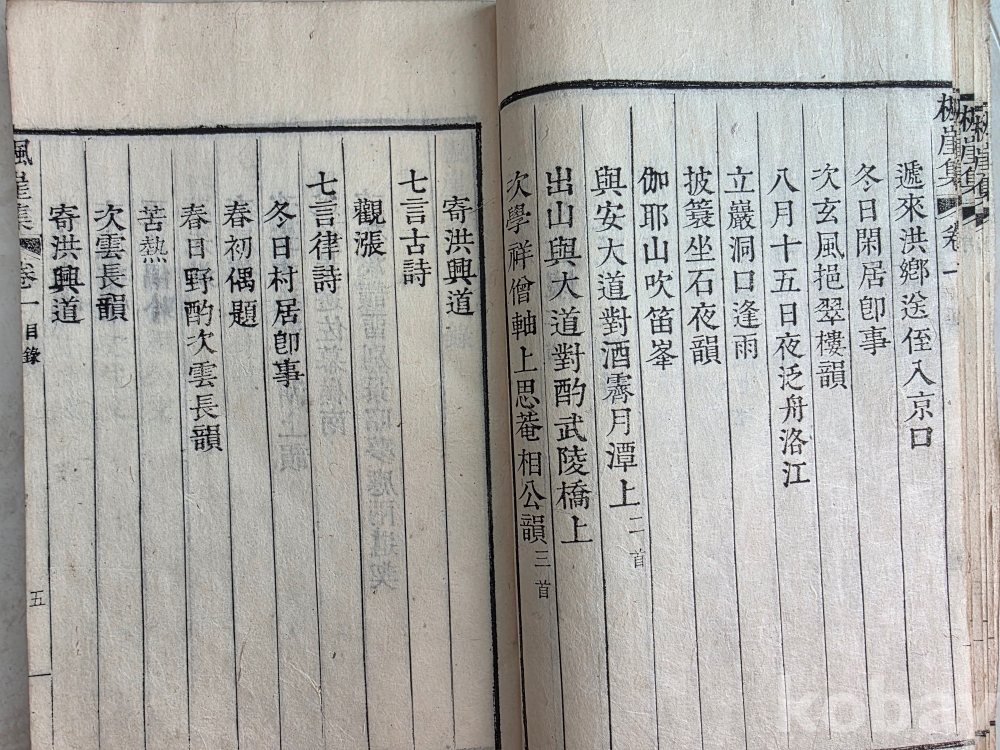 楓崖集 卷一
遞來洪鄕送侄入京口
冬日閑居卽事
次玄風挹翠樓韻
八月十五日夜泛舟洛江
立巖洞口逢雨
披簑坐石夜韻
伽耶山吹笛峯
與安大道對酒霽月潭上 二首
出山與大道對酌武陵橋上
次學祥僧軸上思菴相公韻 三首
寄洪興道
七言古詩
觀漲
七言律詩
冬日村居卽事
春初偶題
春日野酌次雲長韻
苦熱
次雲長韻
寄洪興道
楓崖集 卷一 目錄 五
koba